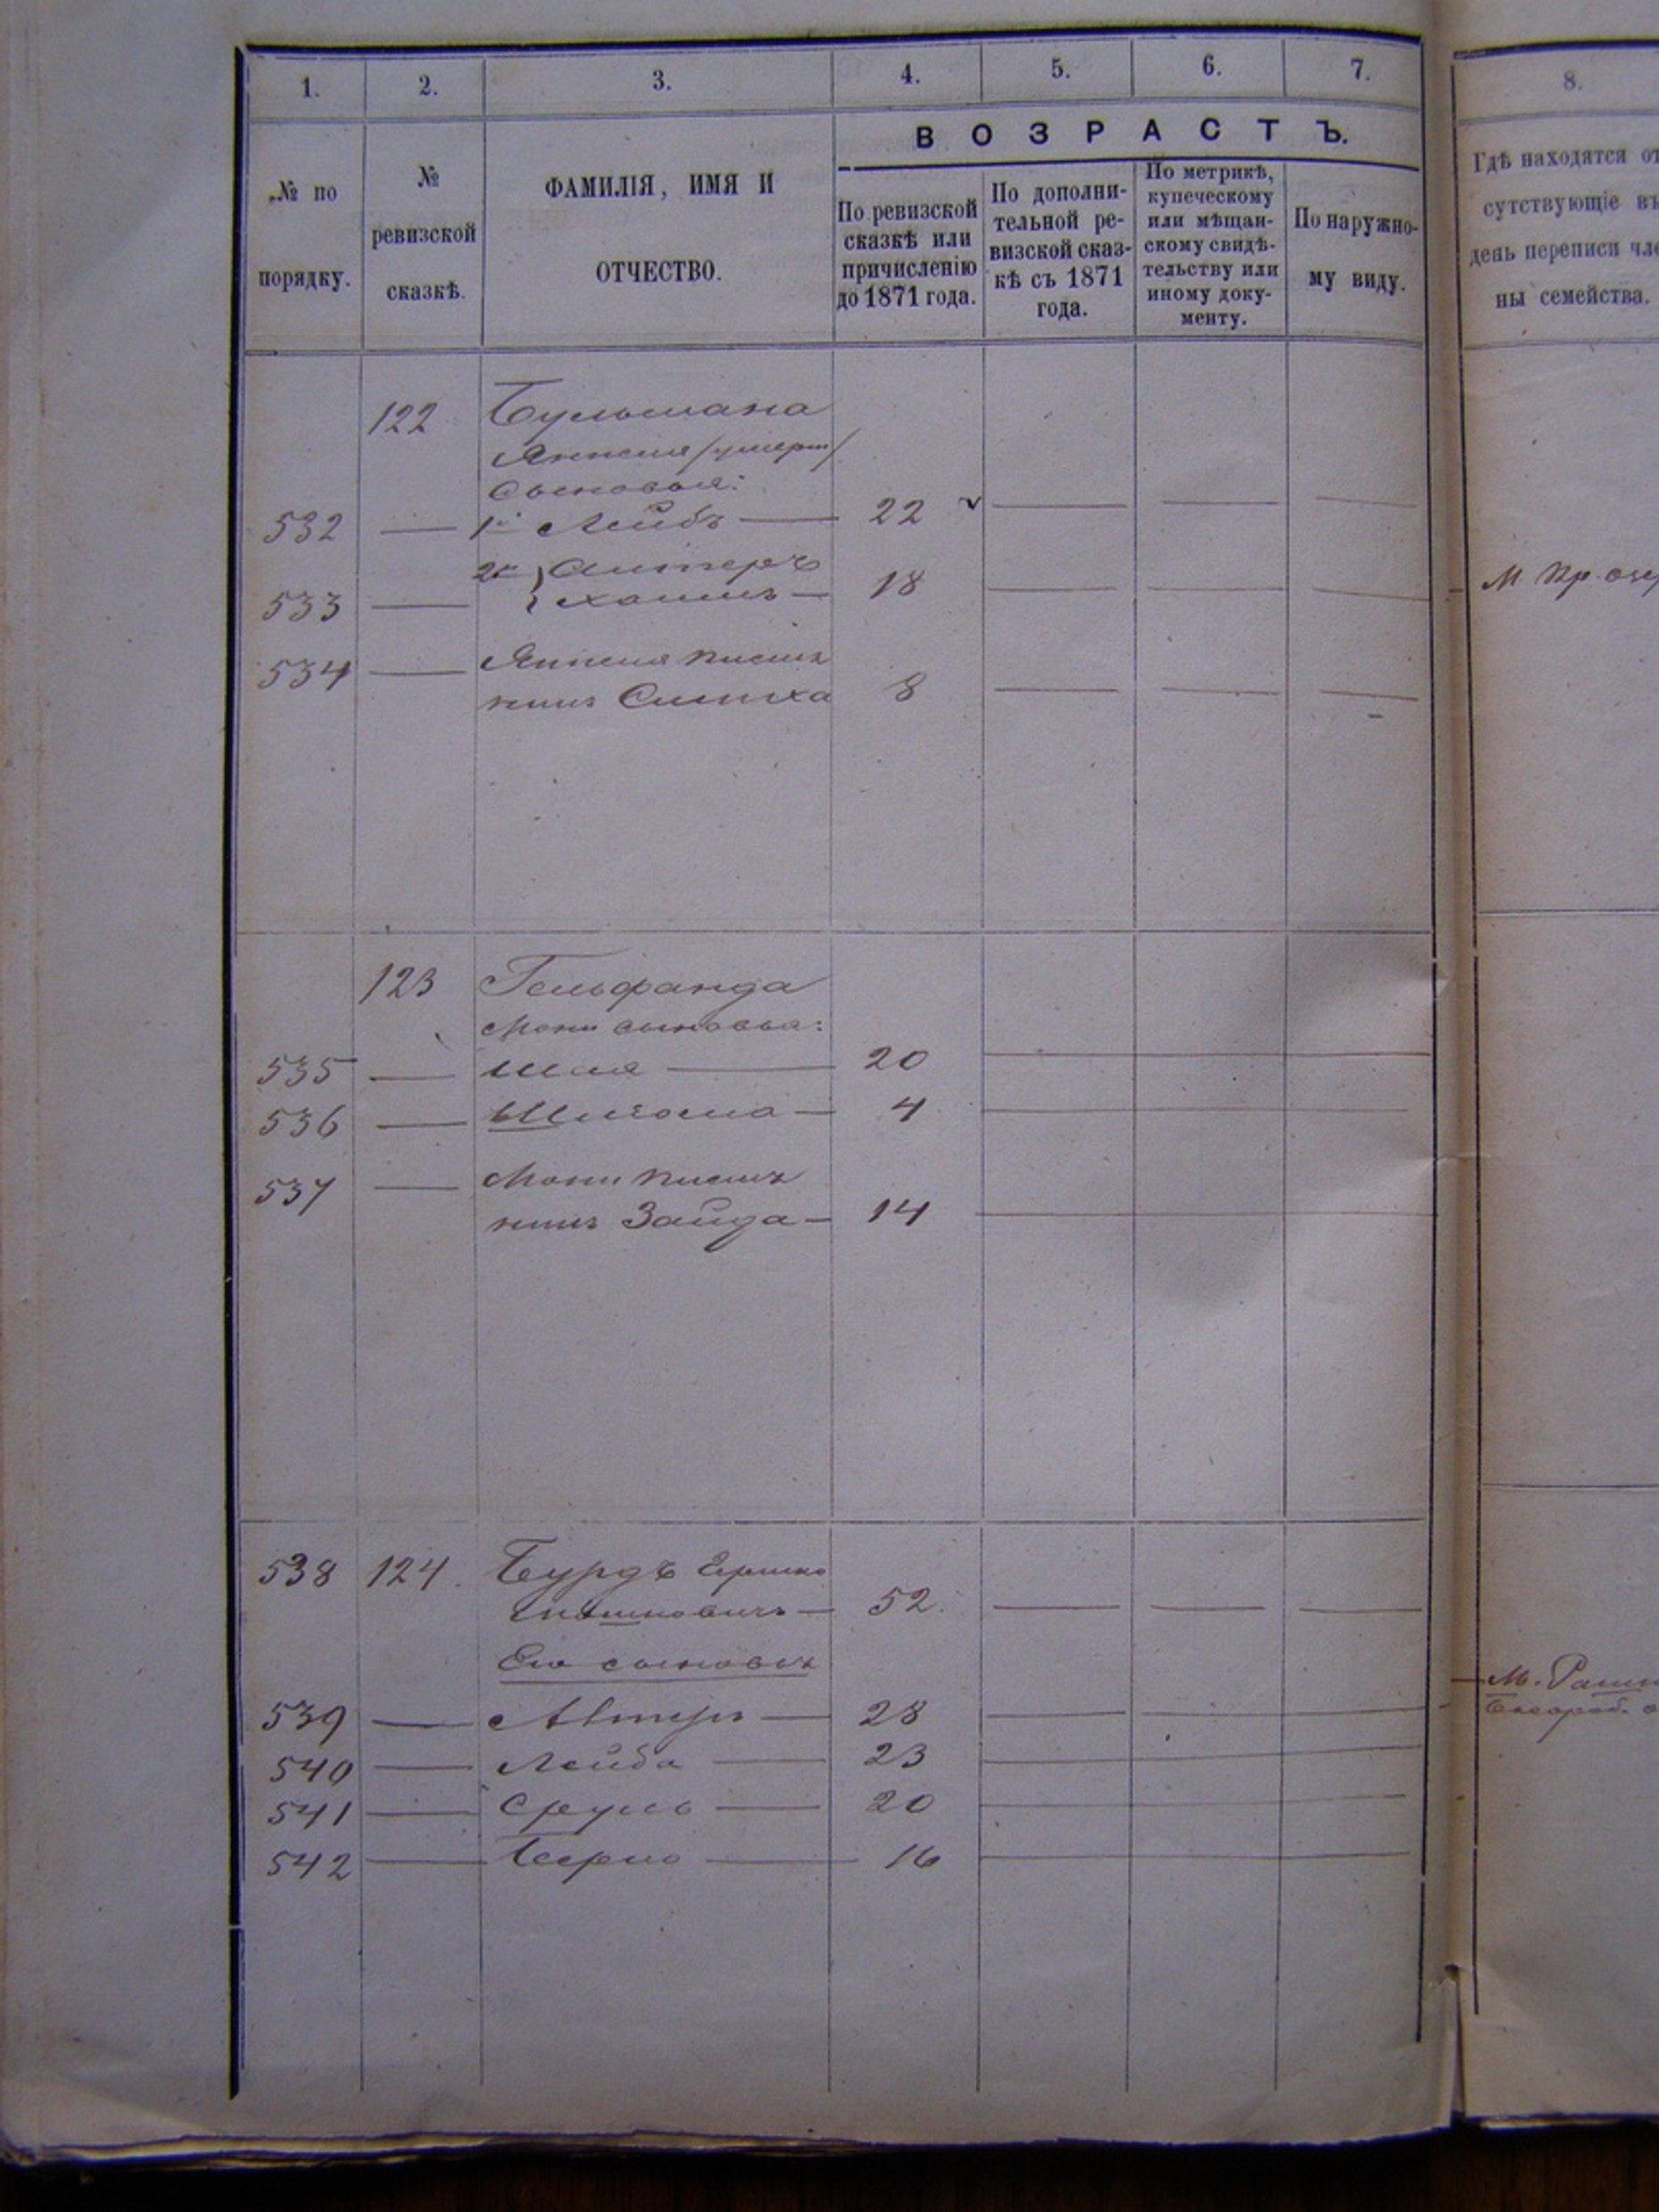 1. 2. 3. 4. 5. 6. 7. 8.
ВОЗРАСТЪ.
№ по порядку.
№ ревизской сказкѣ.
ФАМИЛІЯ, ИМЯ И
ОТЧЕСТВО.
По ревизской
сказкѣ или
причисленію
до 1871 года.
По дополни-
тельной ре-
визской сказ-
кѣ съ 1871
года.
По метрикѣ,
купеческому
или мѣщан-
скому свидѣ-
тельству или
иному доку-
менту.
По наружно-
му виду.
Гдѣ находятся от
сутствующіе въ
день переписи чле
ны семейства.
122 Бульмана
/умерш/
Сыновья:
532 — 1й Лейбъ — 22
2й
533 — 18
534 —
Симха 8
М. Кр.
123 Гельфанда
Мони сыновья:
535 — Шая — 20
536 — Шліома — 4
537 — Мони
Зайда — 14
538 124. Бурдъ Гершко
52.
Его сыновья
539 — Алтеръ — 28
540 — Лейба — 23
541 — Сруль — 20
542 — Берко — 16
М.